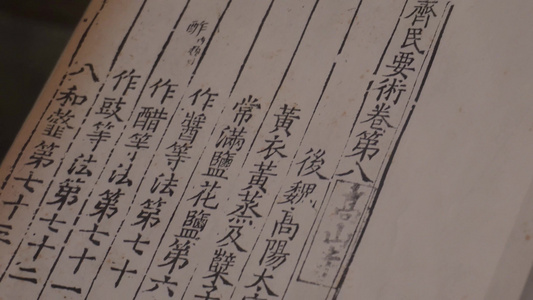 齊民要術卷第八
高山寺
後魏高陽太
黃衣黃蒸及櫱
常滿鹽花鹽第六
作醬等法第七十
作醋等法第七十一
作豉等法第七十二
八和韲第七十三